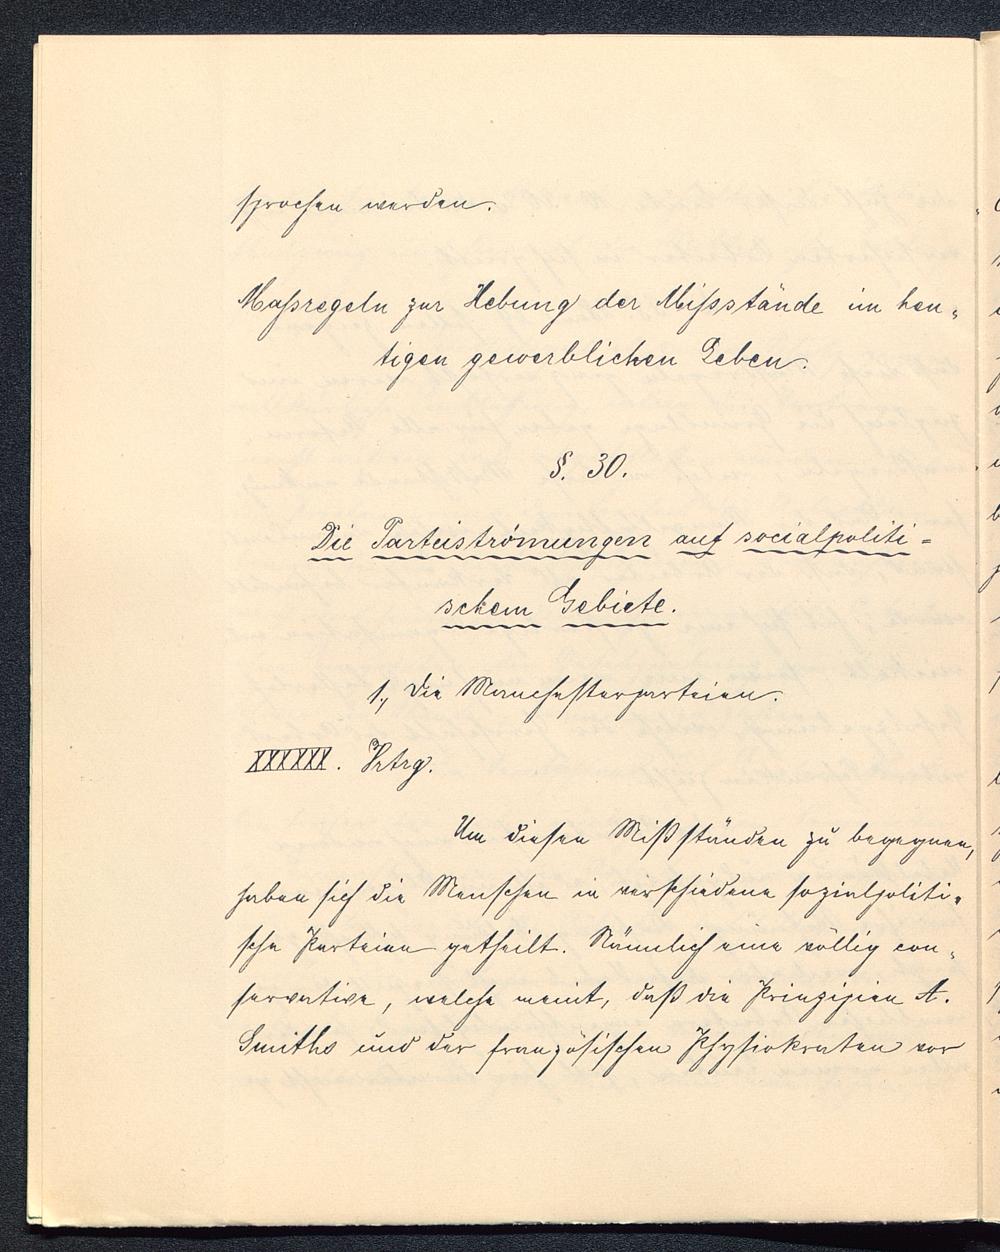 sprochen werden.
Maßregeln zur Hebung der Mißstände im heu-
tigen gewerblichen Leben.
§. 30.
Die Parteiströmungen auf socialpoliti-
schem Gebiete.
1., Die Manchesterparteien.
XXXXXX. Vrtrg.
Um diesen Mißständen zu begegnen,
haben sich die Menschen in verschiedene sozialpoliti-
sche Parteien getheilt. Nämlich eine völlig con-
servative, welche meint, daß die Prinzipien A.
Smiths und der französischen Physiokraten vor